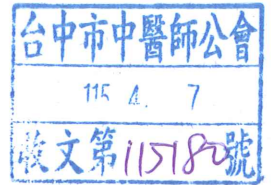 台中市中醫師公會
115 4. 7
收文第115180號